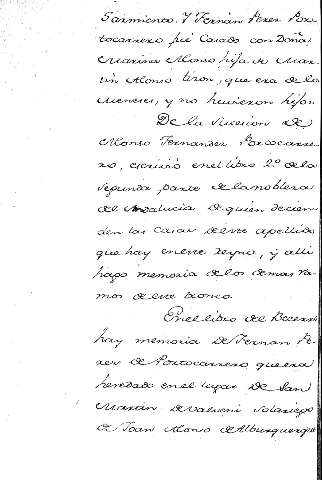 Sarmiento. Y Fernan Perez Por-
tocarrero fué Casado con Doña
Marina Alonso hija de Mar-
tin Alonso tiron, que era de los
Meneses, y no huvieron hijos.
De la subcesion de
Alonso Fernandez Portocarre-
ro, escrivió en el libro 2º de la
segunda parte de la nobleza
del Andalucia de quien decien
den las Casas de este apellido
que hay en este reyno, y alli
hago memoria de los demas ra-
mos de este tronco.
En el libro del Becerro
hay memoria de Fernan Pe-
rez de Portocarrero que era
heredado en el lugar de San
Martin de Valveni Solariego
de Joan Alonso de Alburquerque